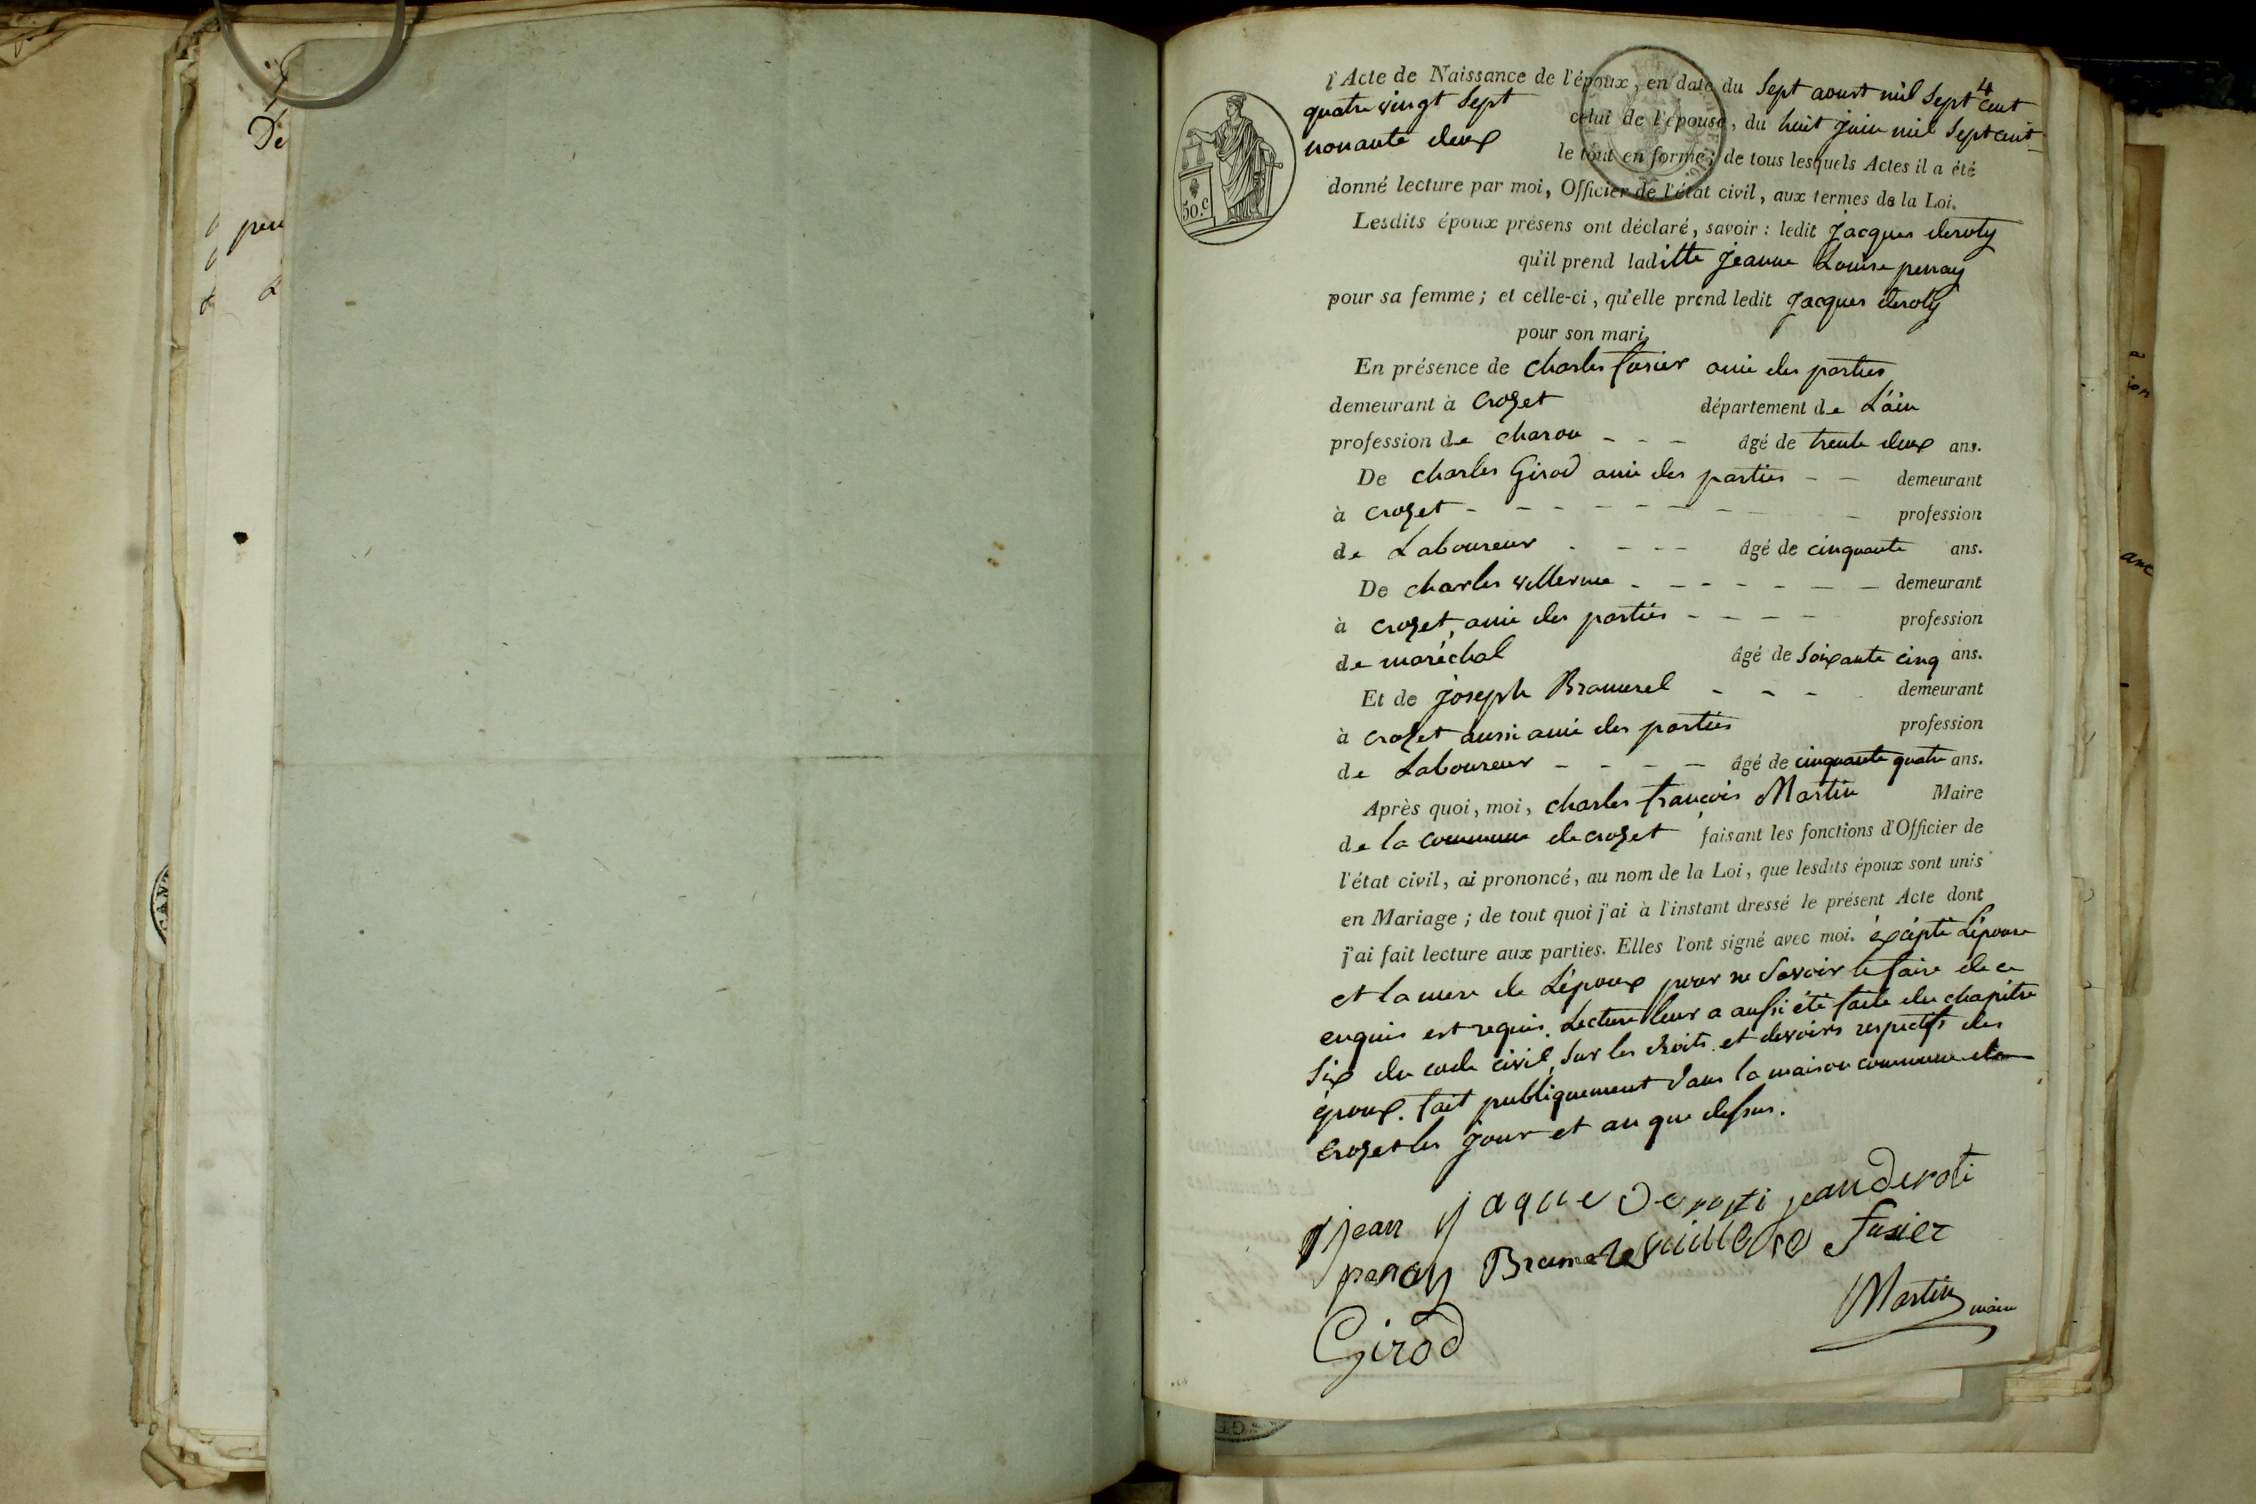 De
peu
l'Acte de Naissance de l'époux, en date du Sept aoust mil Sept cent
4
quatre vingt Sept celui de l'épouse, du huit juin mil Sept cent
nonante deux le tout en forme; de tous lesquels Actes il a été
donné lecture par moi, Officier de l'état civil, aux termes de la Loi.
50.c
Lesdits époux présens ont déclaré, savoir: ledit Jacques deroty
qu'il prend laditte Jeanne Louise perray
pour sa femme; et celle-ci, qu'elle prend ledit Jacques deroty
pour son mari.
En présence de charles fusier amie des parties
demeurant à Crozet département de L'ain
profession de charon - - - âgé de trente deux ans.
De charles Girod amie des parties - - demeurant
à crozet - - - - - - - - profession
de Laboureur - - - âgé de cinquante ans.
De charles villerme - - - - - - - demeurant
à crozet, amie des parties - - - - profession
de maréchal âgé de Soixante cinq ans.
Et de joseph Bramerel - - - demeurant
à crozet aussi amie des parties profession
de Laboureur - - - - âgé de cinquante quatre ans.
Après quoi, moi, charles francois Martin Maire
de la commune de crozet faisant les fonctions d'Officier de
l'état civil, ai prononcé, au nom de la Loi, que lesdits époux sont unis
en Mariage; de tout quoi j'ai à l'instant dressé le présent Acte dont
j'ai fait lecture aux parties. Elles l'ont signé avec moi. éxcipté L'épouse
et la mere de L'époux pour ne Savoir le faire de ce
enquis est requis. Lecture leur a aussi été faite du chapitre
Six du code civil, Sur les droits et devoirs respectifs des
époux. fait publiquement dans la maison commune de
Crozet les jour et an que dessus.
jean jaque Derosti jean Deroti
perray Bramerel villerme fusier
Girod Martin maire